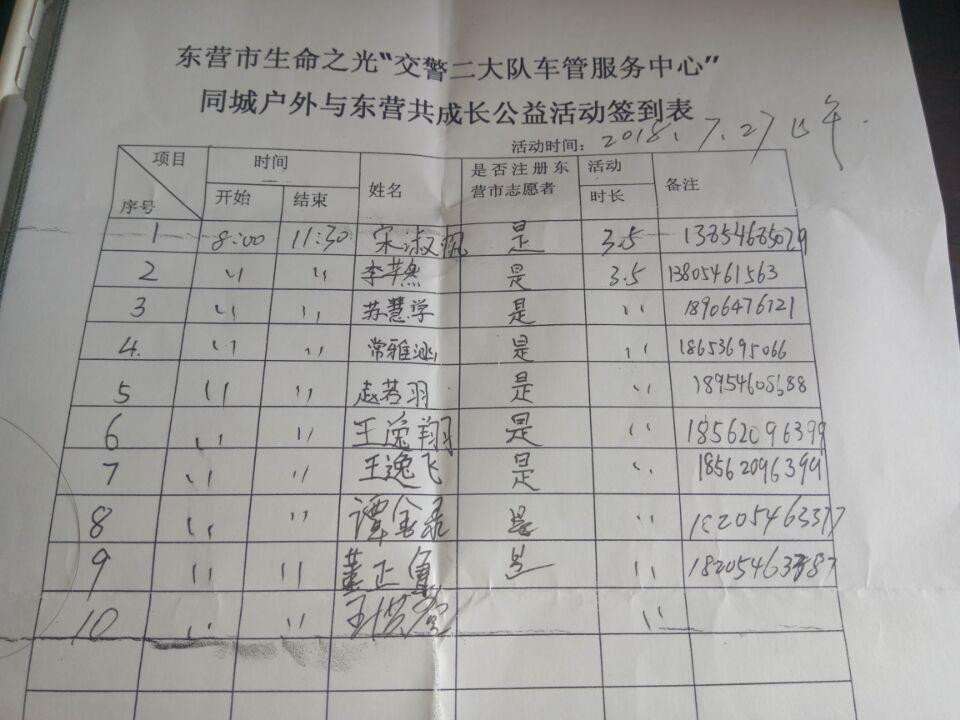 东营市生命之光“交警二大队车管服务中心”
同城户外与东营共成长公益活动签到表
活动时间：2018.7.27上午.
项目 时间 姓名 是否注册东营市志愿者 活动时长 备注
序号 开始 结束
1 8:00 11:30 宋淑 是 3.5 13854685029
2 〃 〃 李苹然 是 3.5 13805461563
3 〃 〃 苏慧学 是 〃 18906476721
4. 〃 〃 常雅 是 〃 18653695066
5 〃 〃 赵若羽 是 〃 18954608688
6 〃 〃 王逸翔 是 〃 18562096399
7 〃 〃 王逸飞 是 〃 18562096399
8 〃 〃 谭金 是 〃 18205463377
9 〃 〃 董正 是 〃
10 〃 〃 王 〃